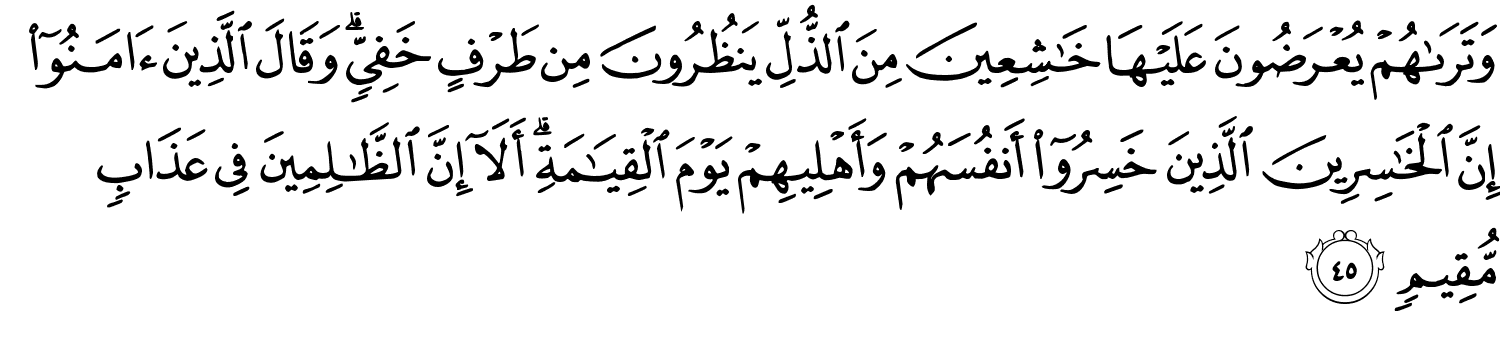 وَتَرَىٰهُمْ يُعْرَضُونَ عَلَيْهَا خَـٰشِعِينَ مِنَ ٱلذُّلِّ يَنظُرُونَ مِن طَرْفٍ خَفِىٍّ ۗ وَقَالَ ٱلَّذِينَ ءَامَنُوٓا۟
إِنَّ ٱلْخَـٰسِرِينَ ٱلَّذِينَ خَسِرُوٓا۟ أَنفُسَهُمْ وَأَهْلِيهِمْ يَوْمَ ٱلْقِيَـٰمَةِ ۗ أَلَآ إِنَّ ٱلظَّـٰلِمِينَ فِى عَذَابٍ
مُّقِيمٍ ٤٥